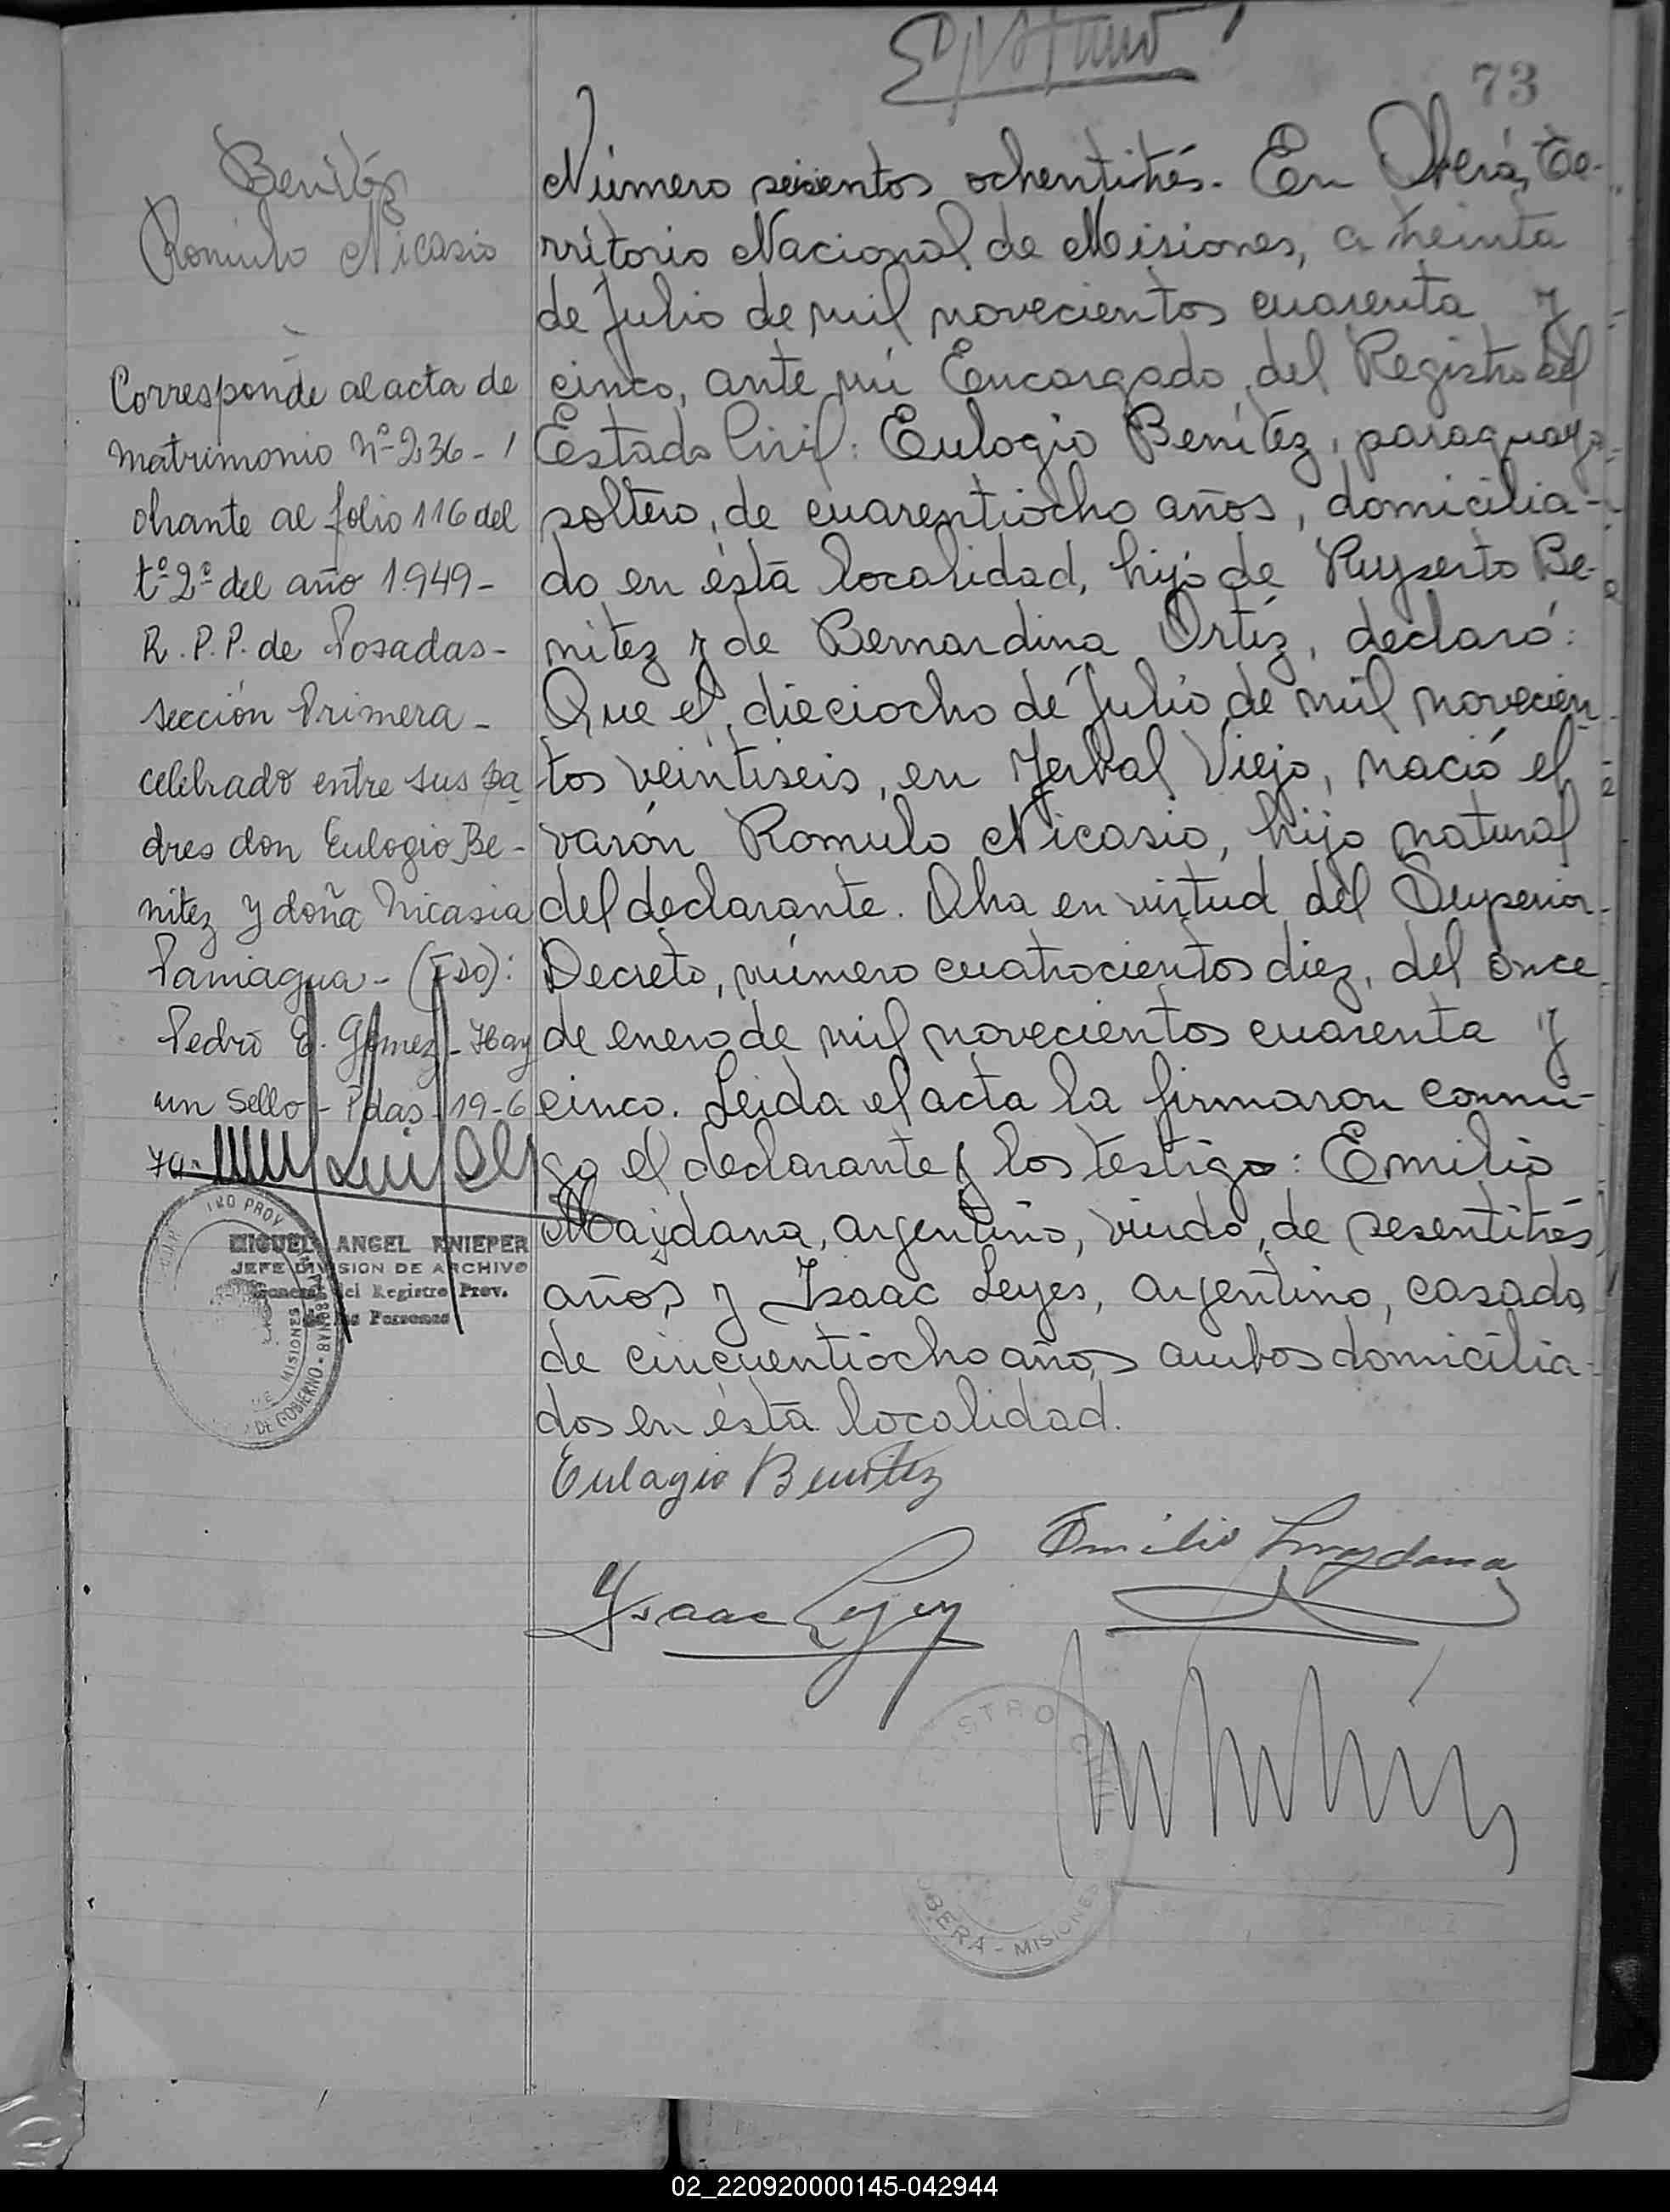 73
Benítez
Romulo Nicasio
Corresponde al acta de
matrimonio Nº 236 -
obrante al folio 116 del
tº 2º del año 1.949 -
R. P. P. de Posadas -
sección Primera -
celebrado entre sus pa-
dres don Eulogio Be-
nitez y doña Nicasia
Paniagua - (Fdo):
Pedro E. Gómez - Hay
un sello - Pdas - 19-6
70.
MIGUEL ANGEL KNIEPER
JEFE DIVISION DE ARCHIVO
General del Registro Prov.
de las Personas
PROV
MISIONES
DE GOBIERNO
Número seisentos ochentitrés. En Oberá, Te-
rritorio Nacional de Misiones, a treinta
de Julio de mil novecientos cuarenta y
cinco, ante mí Encargado del Registro del
Estado Civil: Eulogio Benítez, paraguayo
soltero, de cuarentiocho años, domicilia-
do en ésta localidad, hijo de Ruperto Be-
nitez y de Bernardina Ortíz, declaró:
Que el dieciocho de Julio de mil novecien-
tos veintiseis, en Yerbal Viejo, nació el
varón Romulo Nicasio, hijo natural
del declarante. Obra en virtud del Superior
Decreto, número cuatrocientos diez, del once
de enero de mil novecientos cuarenta y
cinco. Leida el acta la firmaron conmi-
go el declarante y los testigo: Emilio
Maydana, argentino, viudo, de sesentitrés
años y Isaac Leyes, argentino, casado
de cincuentiocho años ambos domicilia-
dos en ésta localidad.
Eulagio Benitez
Emilio Maydana
Ysaac Leyes
REGISTRO CIVIL
OBERA - MISIONES
02_220920000145-042944